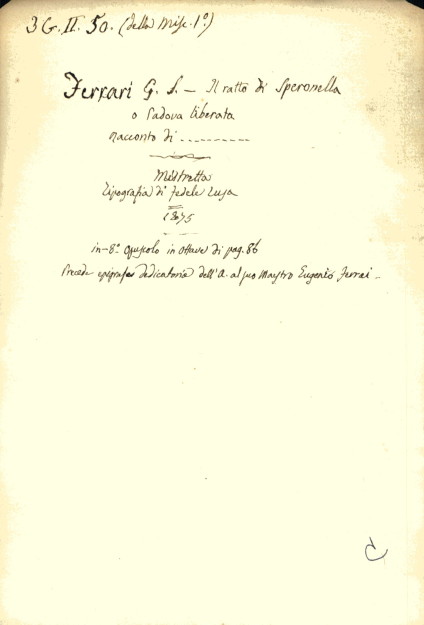 3 G. II. 50. (della Misc. 1º)
Ferrari G. S. — Il ratto di Speronella
o Padova liberata
racconto di ..........
Mistretta
Tipografia di Fedele
1875
in-8º Opuscolo in ottave di pag. 86
Precede epigrafe dedicatoria dell'A. al suo Maestro Eugenio Ferrai –